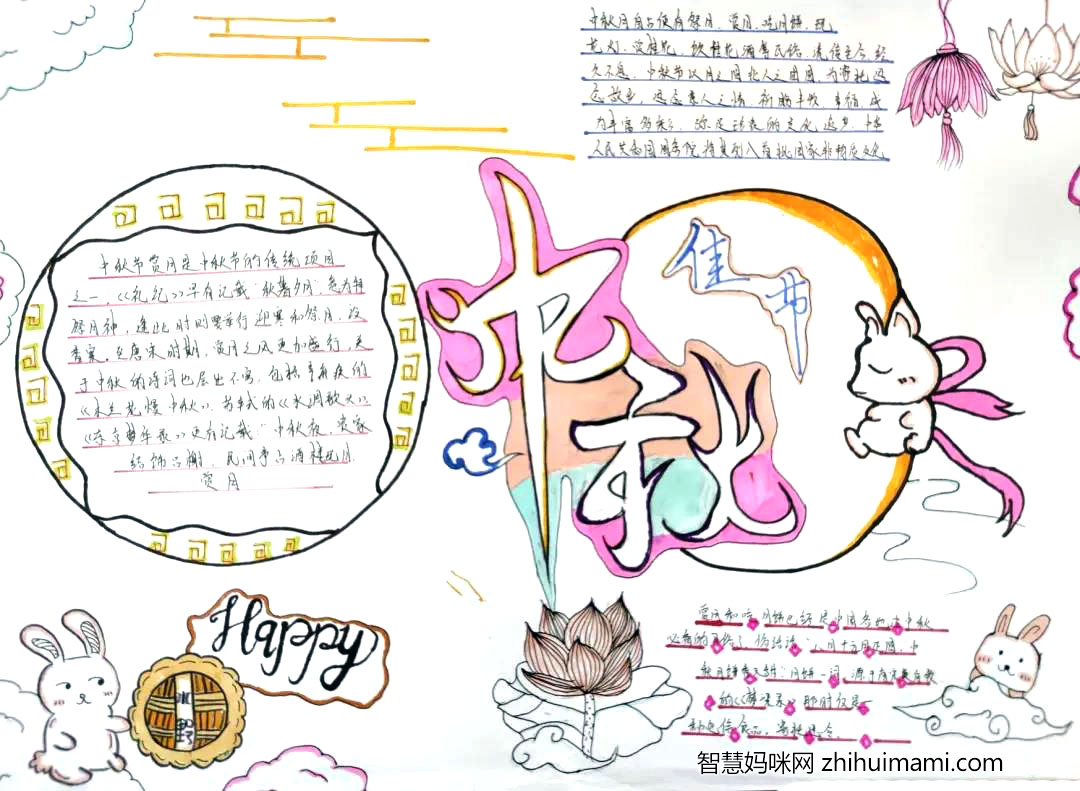 中秋节自古便有祭月、赏月、吃月饼、玩
花灯、赏桂花、饮桂花酒等民俗，流传至今，经
久不息。中秋节以月之圆兆人之团圆，为寄托思
念故乡，思念亲人之情，祈盼丰收、幸福，成
为丰富多彩、弥足珍贵的文化遗产。
人民共和国国务院将其列入首批国家非物质文化
中秋
佳节
中秋节赏月是中秋节的传统项目
之一，《礼记》早有记载"秋暮夕月"，意为拜
祭月神，逢此时则要举行迎寒和祭月，设
香案。至唐宋时期，赏月之风更加盛行，关
于中秋的诗词也层出不穷，包括辛弃疾的
《木兰花慢中秋》、苏轼的《水调歌头》、
《东京梦华录》更有记载"中秋夜，贵家
结饰台榭，民间争占酒楼玩月
赏月
Happy
赏月和吃月饼已经是中国各地过中秋
必备的习俗，俗话说："八月十五月正圆，中
秋月饼香又甜"月饼一词，源于南宋吴自牧
的《梦粱录》那时仅是一
种点心食品，
智慧妈咪网 zhihuimami.com